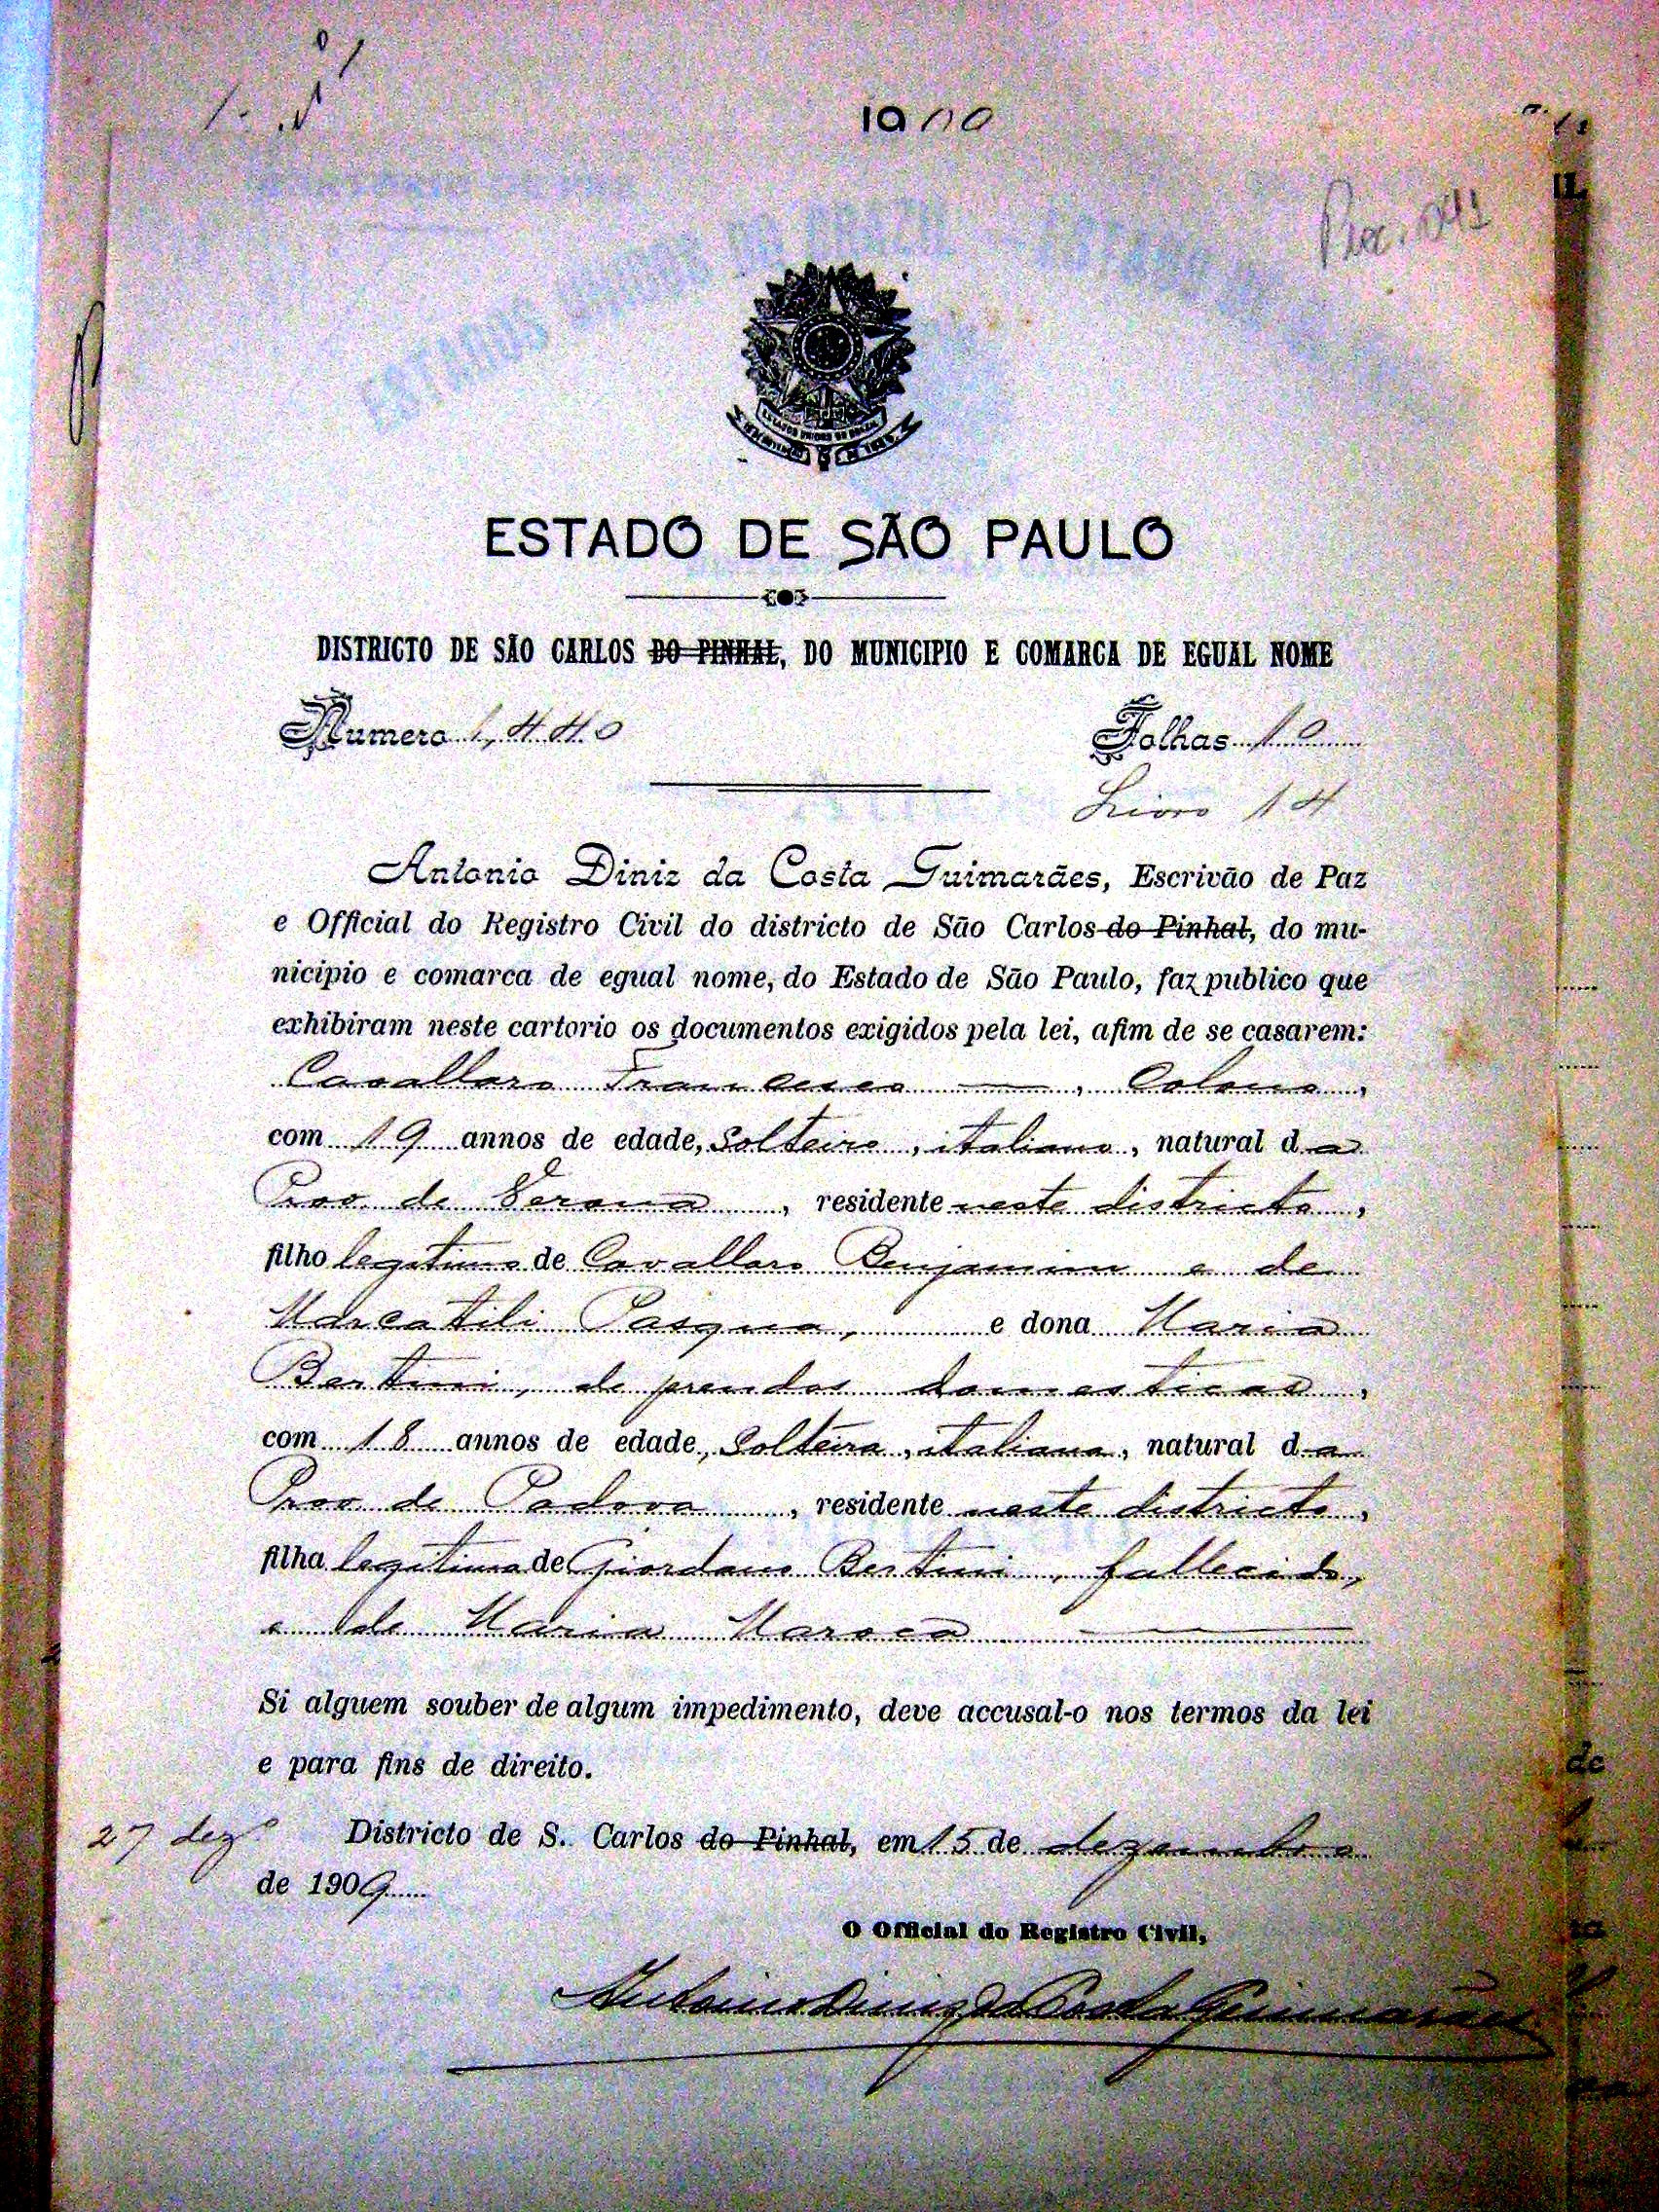 1900
ESTADO DE SÃO PAULO
DISTRICTO DE SÃO CARLOS DO PINHAL, DO MUNICIPIO E COMARCA DE EGUAL NOME
Numero 1,440 Folhas 10
Livro 14
Antonio Diniz da Costa Guimarães, Escrivão de Paz
e Official do Registro Civil do districto de São Carlos do Pinhal, do mu-
nicipio e comarca de egual nome, do Estado de São Paulo, faz publico que
exhibiram neste cartorio os documentos exigidos pela lei, afim de se casarem:
Cavallaro Francesco, Colono,
com 19 annos de edade, Solteiro, italiano, natural da
Prov. de Verona, residente neste districto,
filho legitimo de Cavallaro Benjamim e de
Marcatili Pasqua, e dona Maria
Bertini, de prendas domesticas,
com 18 annos de edade, Solteira, italiana, natural da
Prov de Padova, residente neste districto,
filha legitima de Giordano Bertini, fallecido,
e de Maria Maroca
Si alguem souber de algum impedimento, deve accusal-o nos termos da lei
e para fins de direito.
27 dezº Districto de S. Carlos do Pinhal, em 15 de dezembro
de 1909
O Official do Registro Civil,
Antonio Diniz da Costa Guimarães